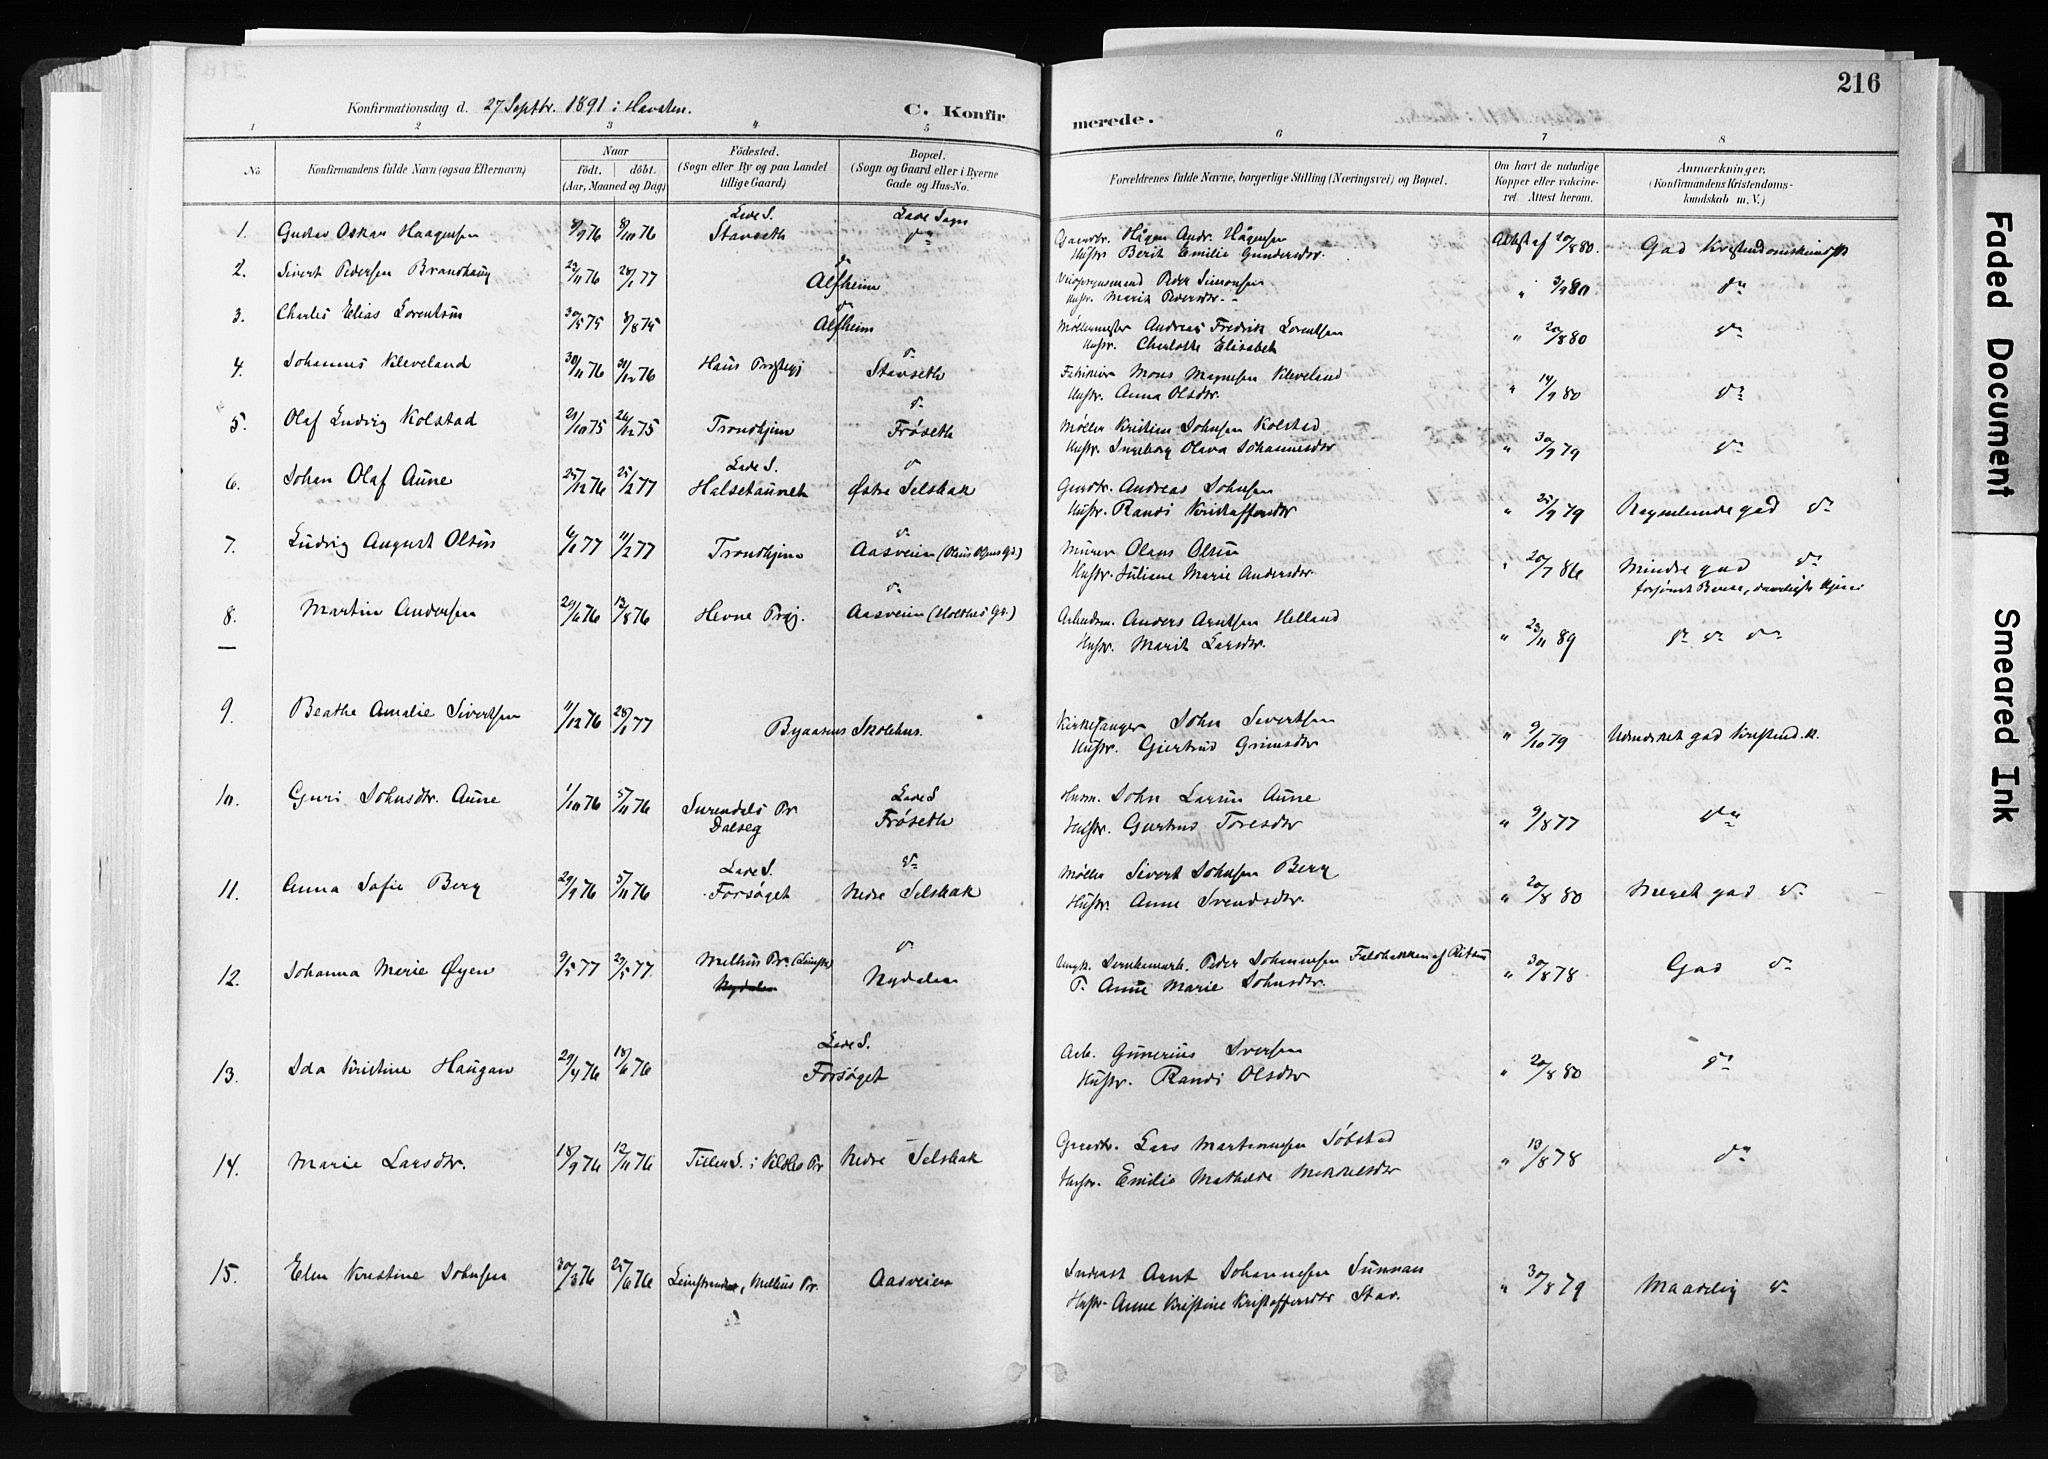 216
Konfirmationsdag d. 27 Septbr. 1891 i Havsten.
C. Konfirmerede.
1 2 3 4 5 6 7 8
No.
Konfirmandens fulde Navn (ogsaa Efternavn)
Naar
født. døbt.
(Aar, Maaned og Dag)
Fødested.
(Sogn eller By og paa Landet
tillige Gaard)
Bopæl.
(Sogn og Gaard eller i Byerne
Gade og Hus-No.
Forældrenes fulde Navne, borgerlige Stilling (Næringsvei) og Bopæl.
Om havt de naturlige
Kopper eller vakcine-
ret. Attest herom.
Anmærkninger.
(Konfirmandens Kristendoms-
kundskab m. V.)
1. Gustav Oskar Haagensen 8/9 76 8/10 76 Lade S. Stavseth Lade Sogn do
Gaardbr. Hågen Andr. Hågensen
Hustr. Berit Emilie Gundersdtr. Attest af 20/8 80. God Kristendomskundsk.
2. Sivert Pedersen Brandhaug 23/11 76 28/1 77 do Alfheim
Peder Simonsen
Hustr. Marit Pedersdtr. " 3/9 80 do
3. Charles Elias Lorentsen 30/5 75 8/8 75 do Alfheim
Møllemester Andreas Fredrik Lorentsen
Hustr. Charlotte Elisabeth " 20/8 80 do
4. Johannes Kleveland 30/11 76 31/12 76 Haus Prgj. do Stavseth
Mons Magnesen Kleveland
Hustr. Anna Olsdtr. " 14/9 80 do
5. Olaf Ludvig Kolstad 21/10 75 26/12 75 Trondhjem do Frøseth
Møller Kristian Johnsen Kolstad
Hustr. Ingeborg Olava Johannesdtr " 30/9 79 do
6. Johan Olaf Aune 25/12 76 25/2 77 Lade S. Halsetaunet do Østre Selsbak
Gaardbr. Andreas Johnsen
Hustr. Randi Kristoffersdtr " 9 79 god do
7. Ludvig August Olsen 6/1 77 11/2 77 Trondhjem do Aasveien
Murer Olaus Olsen
Hustr. Juliane Marie Andersdtr. " 20/7 86 Mindre god do
8. Martin Andersen 29/6 76 13/8 76 Hevne Prgj. do Aasveien
Arbeidsm. Anders Arntsen Helland
Hustr. Marit Larsdtr. " 23/11 89 do do do
9. Beathe Amalie Sivertsen 11/12 76 28/1 77 Byaasens Skolehus.
Kirkesanger John Sivertsen
Hustr. Gjertrud Grimsdtr " 9/10 79 Udmærket god Kristend.k.
10. Guri Johnsdtr. Aune 1/10 76 5/11 76 Surendals Pr. Dalseg Lade S Frøseth
Husm. John Larsen Aune
Hustr. Gjertrud Toresdtr " 9/8 77 do
11. Anna Sofie Berg 29/9 76 5/11 76 Lade S. Forsøget do Nedre Selsbak
Møller Sivert Johnsen Berg
Hustr. Anne Svendsdtr. " 20/8 80 Meget god do
12. Johanna Marie Øyen 9/5 77 27/5 77 Melhus Pr. do Nydalen
Ungk. Peder Johannesen
P. Anne Marie Johnsdtr. " 30/8 78 God do
13. Ida Kristine Haugan 29/4 76 18/6 76 Lade S. Forsøget
Arb. Gunerius Iversen
Hustr. Randi Olsdtr " 20/8 80 do
14. Marie Larsdtr. 18/9 76 12/11 76 Tiller S. i Klæbo Pr Nedre Selsbak
Gaardbr. Lars Martinusen Søbstad
Hustr. Emilie Mathilde Mikkelsdtr " 13/8 78 do
15. Elen Kristine Johnsen 30/3 76 25/6 76 Leinstranden, Melhus Pr. Aasveien
Inderst Arnt Johannesen Sunnan
Hustr. Anne Kristine Kristoffersdtr Stav. " 30/8 79 Maadelig do
Faded Document
Smeared Ink